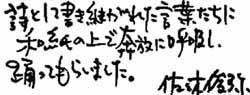 詩として書き継がれた言葉たちに
和紙の上で奔放に呼吸し、
踊ってもらいました。